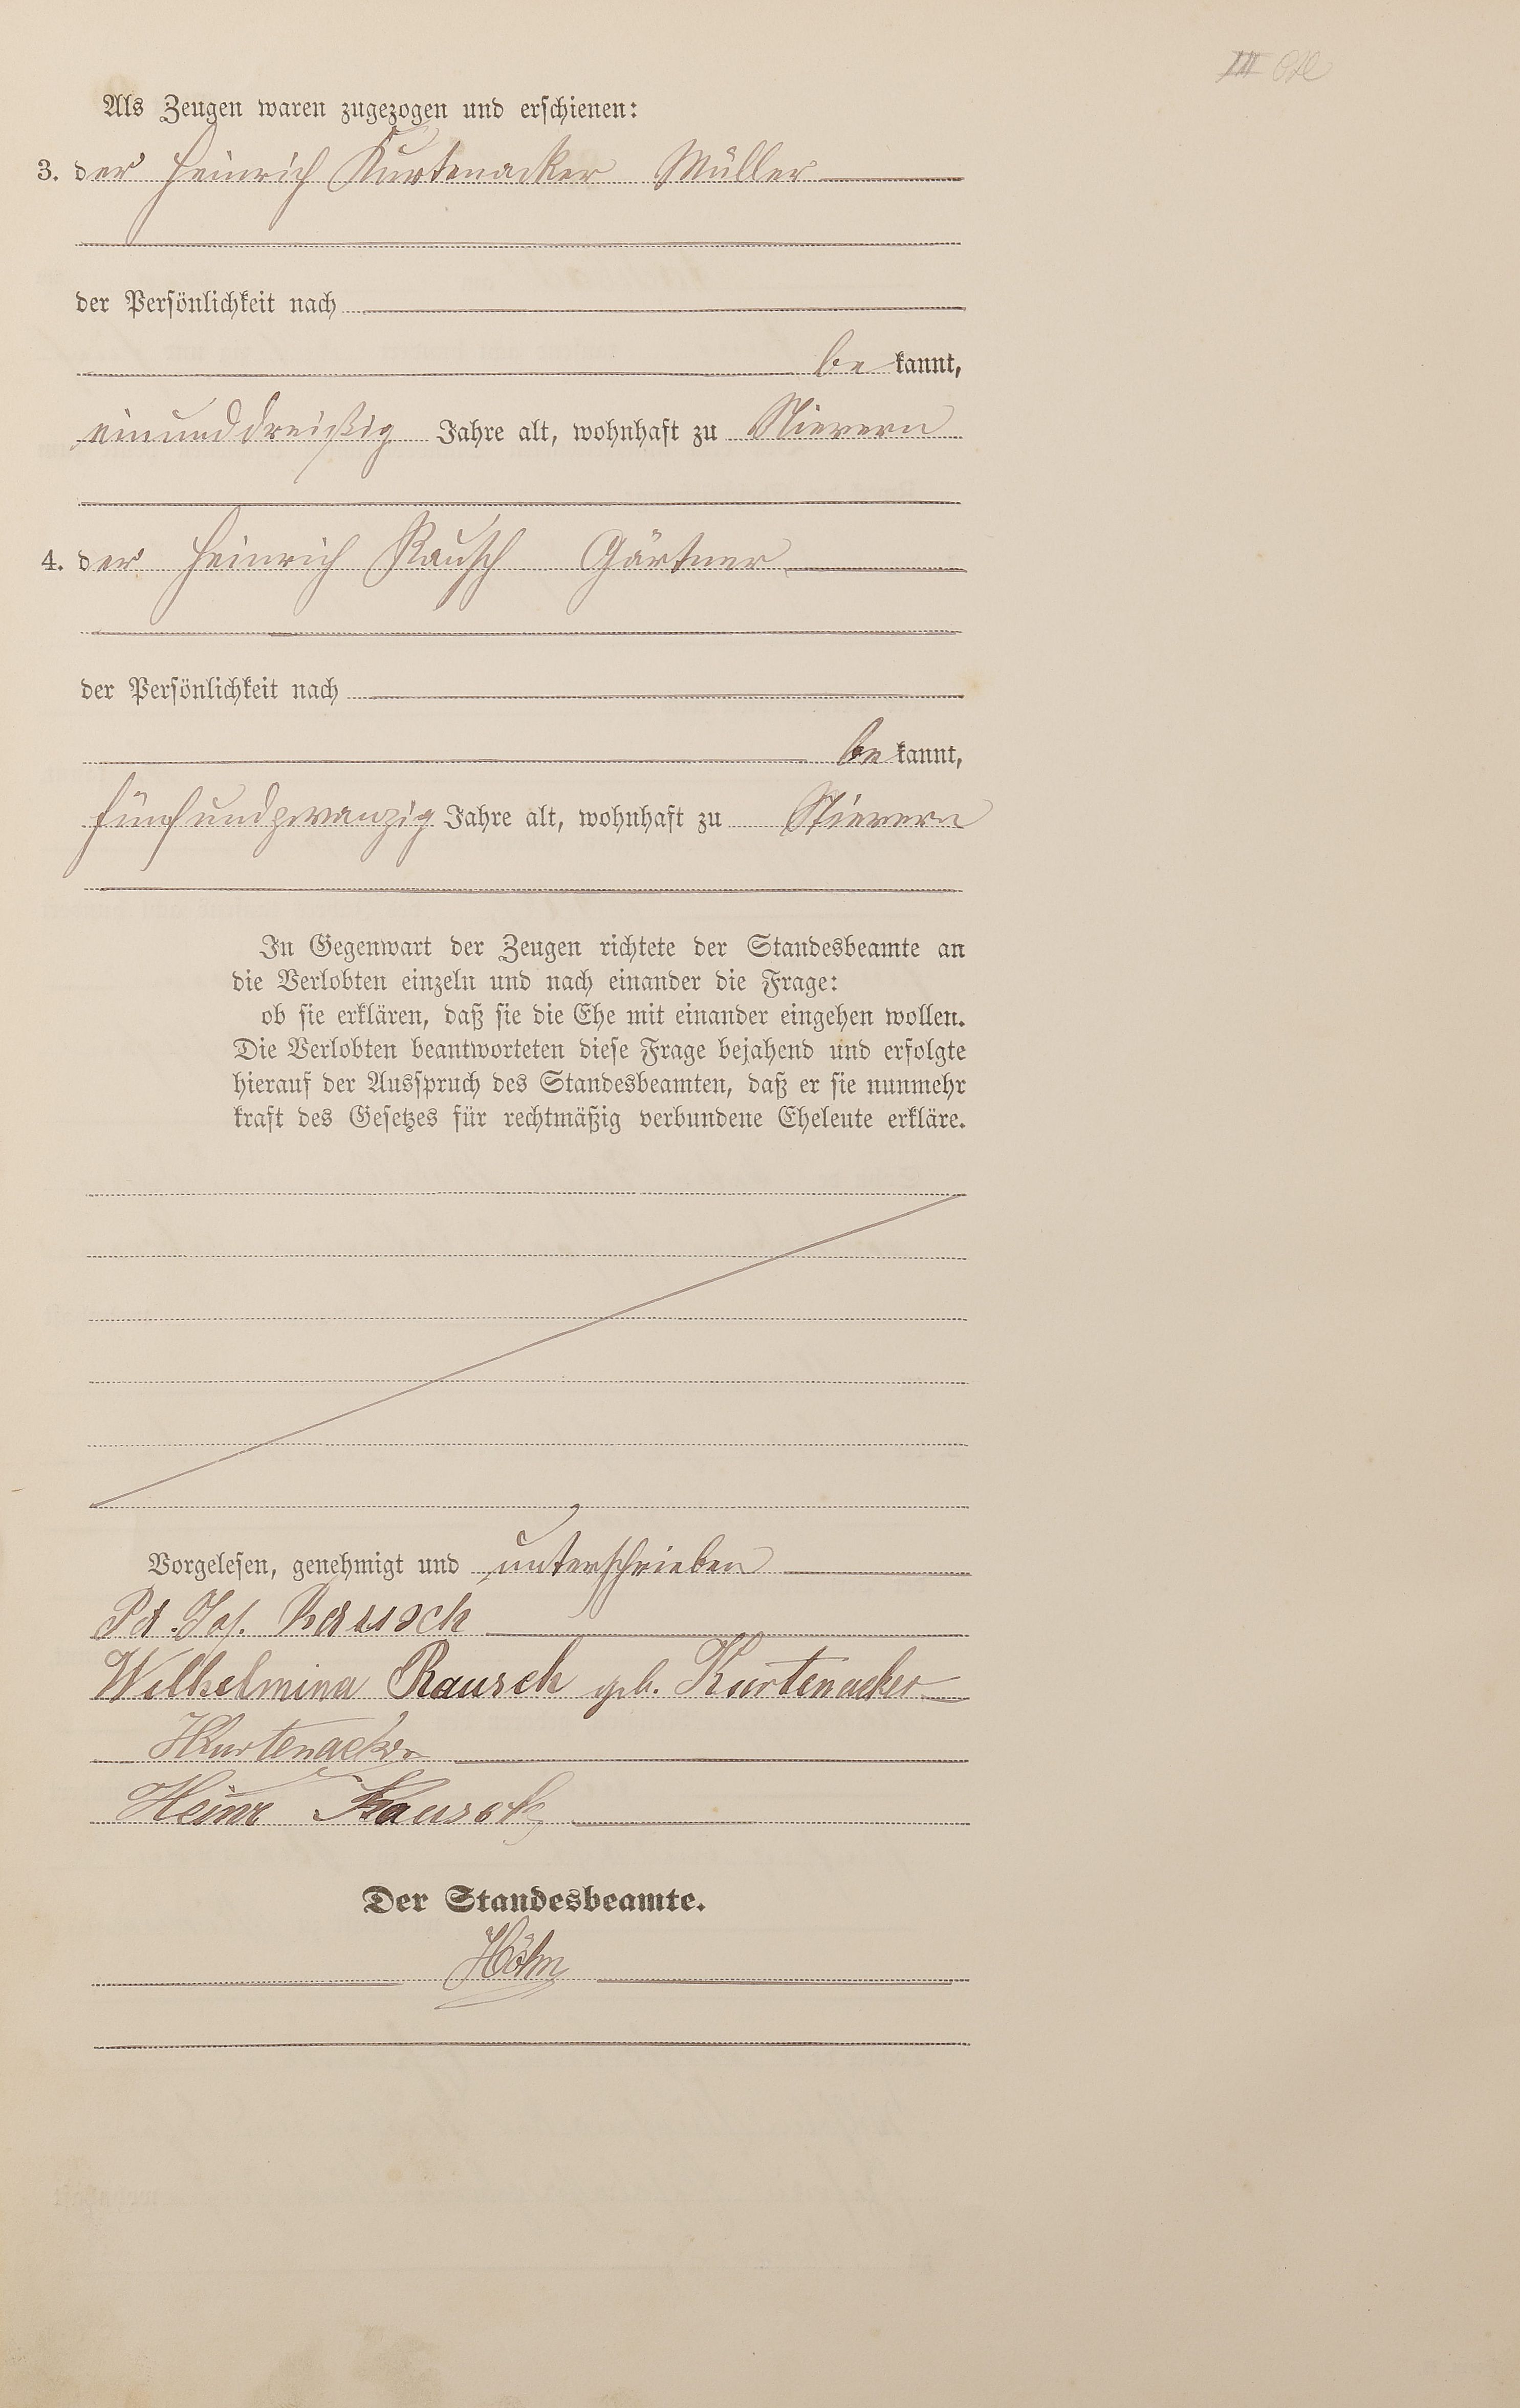 Als Zeugen waren zugezogen und erschienen:
3. der Heinrich Kurtenacker Müller
der Persönlichkeit nach
be kannt,
einunddreißig Jahre alt, wohnhaft zu Nievern
4. der Heinrich Rausch Gärtner
der Persönlichkeit nach
be kannt,
fünfundzwanzig Jahre alt, wohnhaft zu Nievern
In Gegenwart der Zeugen richtete der Standesbeamte an
die Verlobten einzeln und nach einander die Frage:
ob sie erklären, daß sie die Ehe mit einander eingehen wollen.
Die Verlobten beantworteten diese Frage bejahend und erfolgte
hierauf der Ausspruch des Standesbeamten, daß er sie nunmehr
kraft des Gesetzes für rechtmäßig verbundene Eheleute erkläre.
Vorgelesen, genehmigt und unterschrieben
Jos. Rausch
Wilhelmina Rausch geb. Kurtenacker
HKurtenacker
Heinr Rausch
Der Standesbeamte.
Höhn